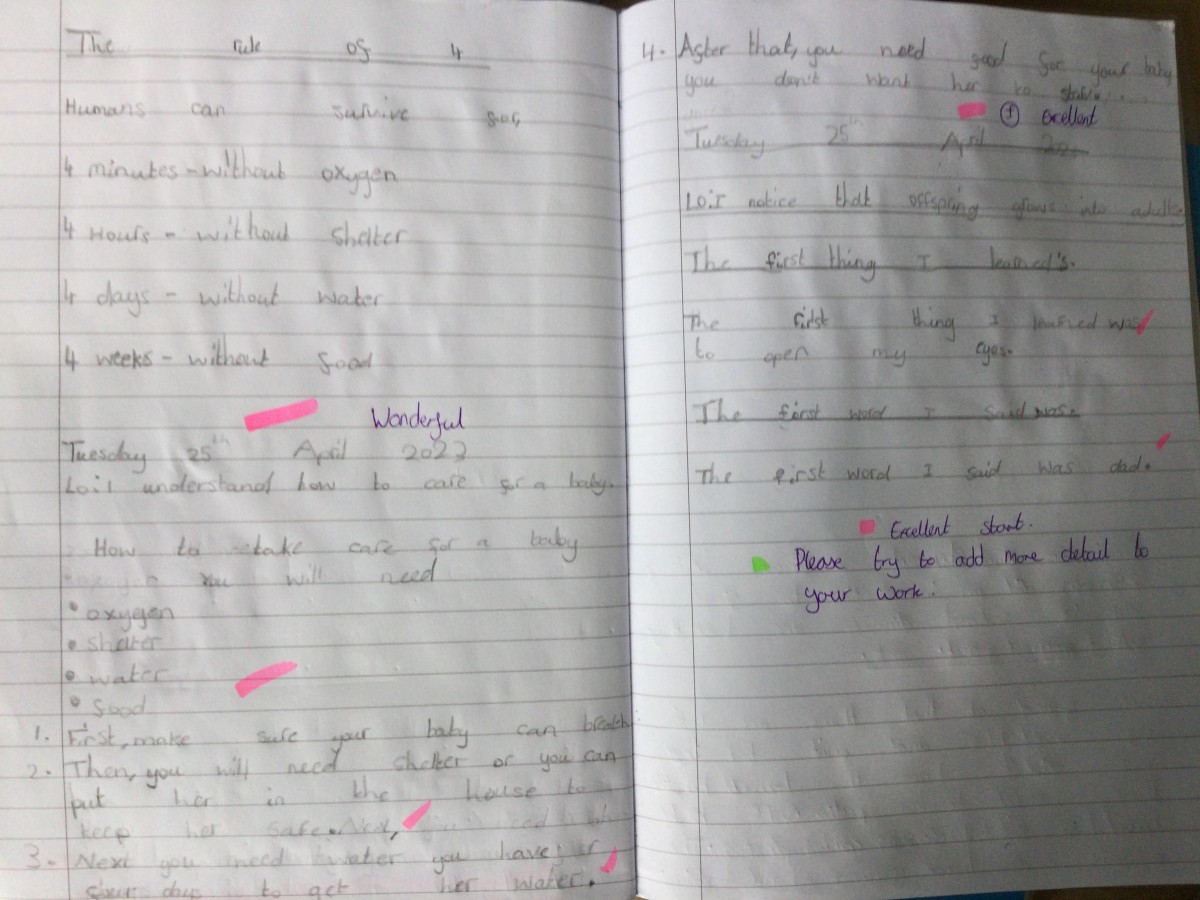 The rule of 4
Humans can survive for
4 minutes - without oxygen
4 Hours - without shelter
4 days - without water
4 weeks - without food
Wonderful
Tuesday 25th April 2023
Lo: I understand how to care for a baby.
How to take care for a baby
You will need
• oxygen
• shelter
• water
• food
1. First, make sure your baby can breath
2. Then, you will need shelter or you can
put her in the house to
keep her safe. Next,
3. Next you need water you have
days to get her water.
4. After that, you need food for your baby
you don't want her to
① excellent
Tuesday 25th April
Lo: I notice that offspring grows into adults
The first thing I learned's.
The first thing I learned was
to open my eyes.
The first word I said was.
The first word I said was dad.
Excellent start.
Please try to add more detail to
your work.